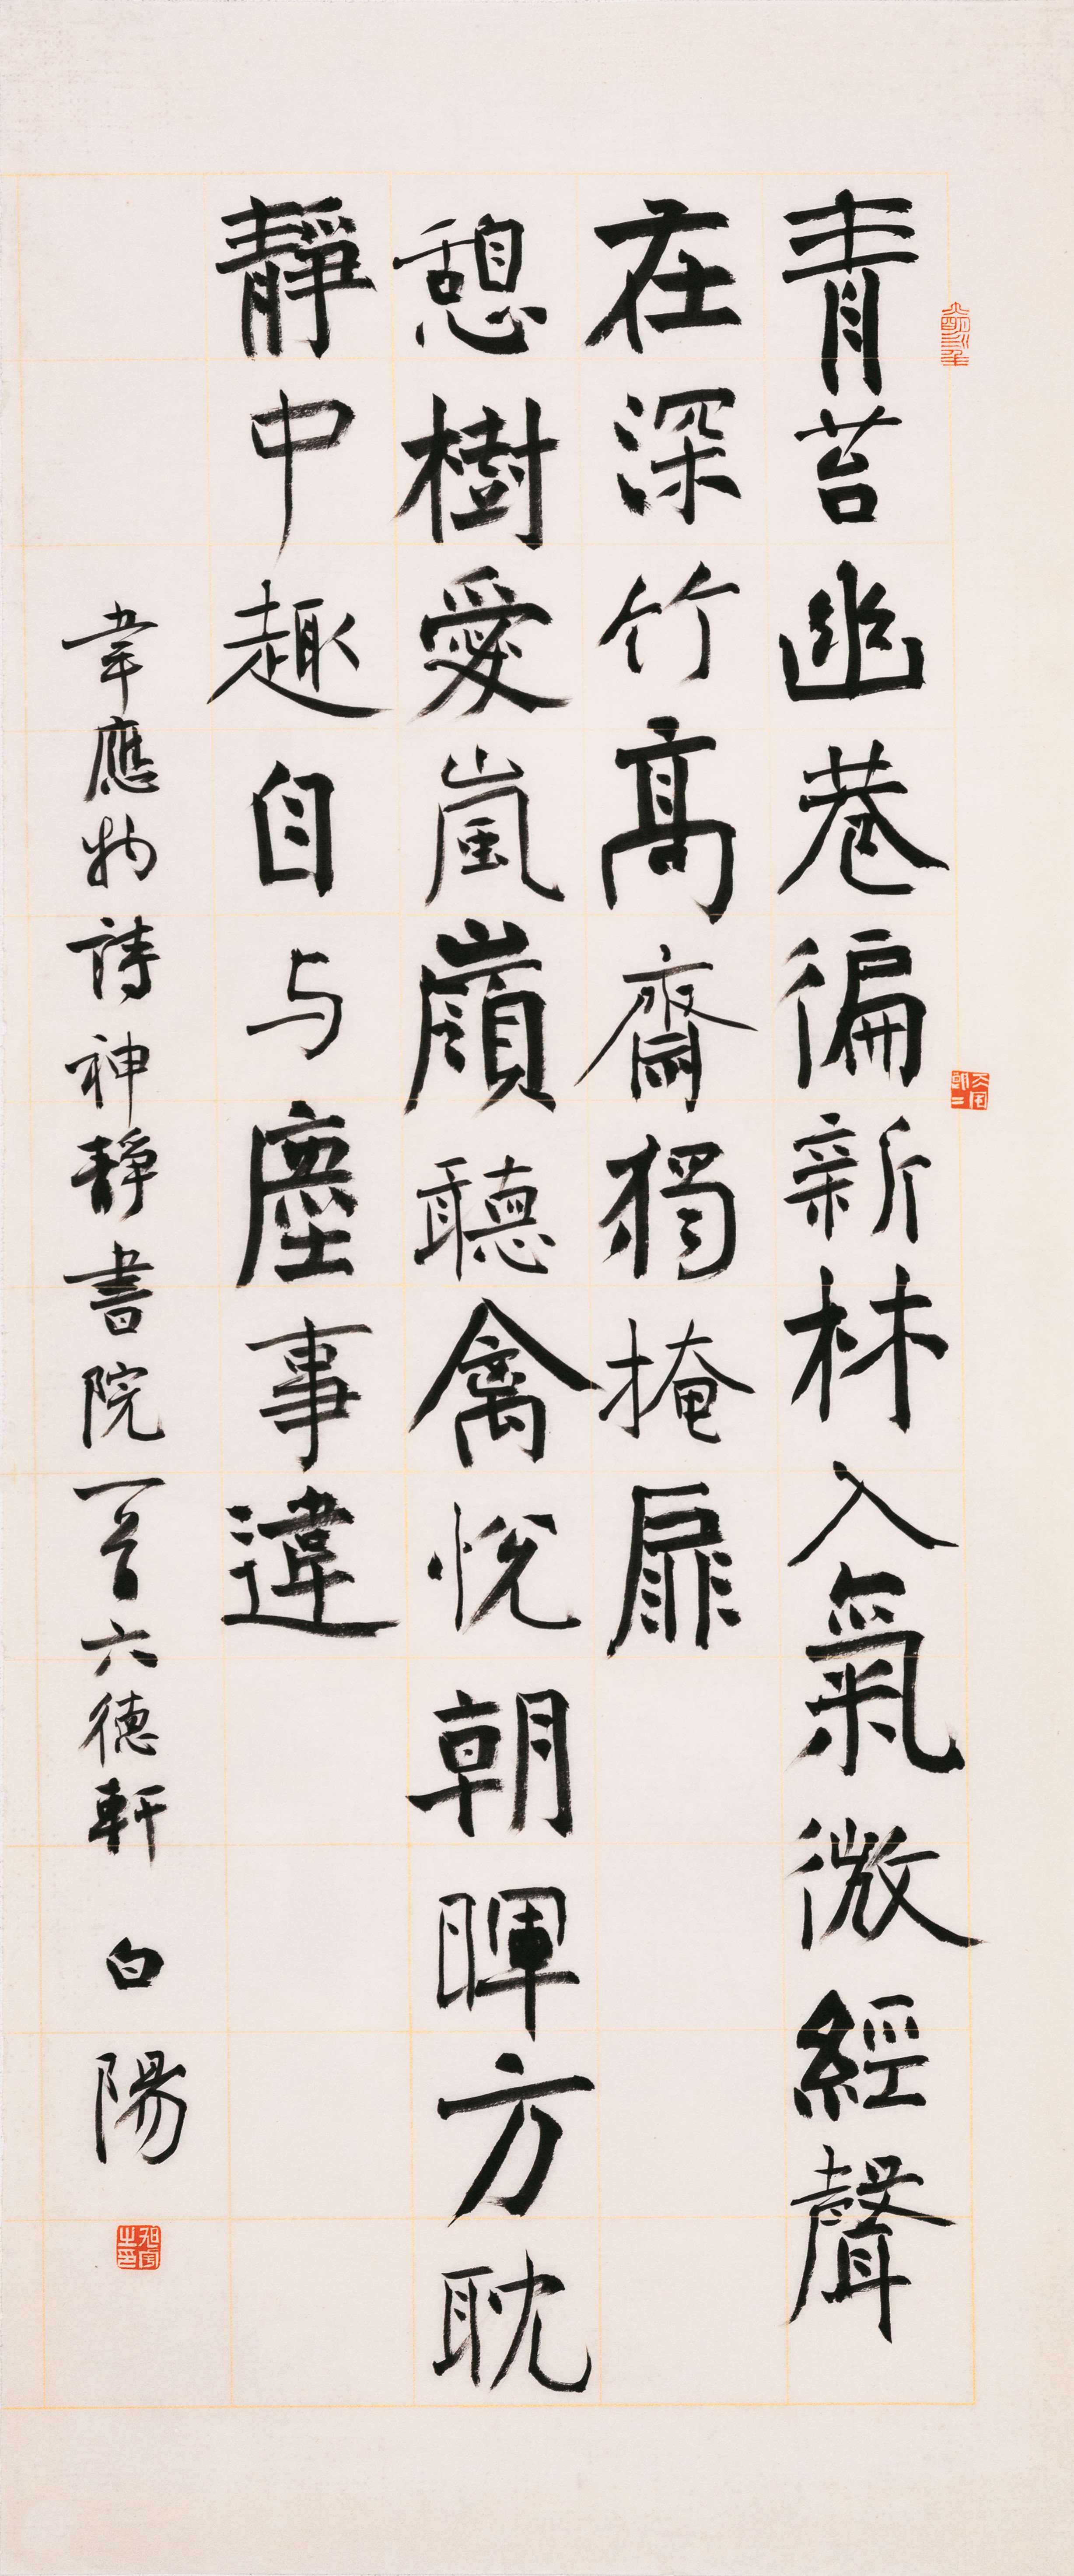 青苔幽巷徧新林入氣微經聲
在深竹高齋獨掩扉
憩樹愛嵐嶺聽禽悅朝暉方耽
靜中趣自与塵事違
韋應物詩神靜書院一首六德軒 白陽